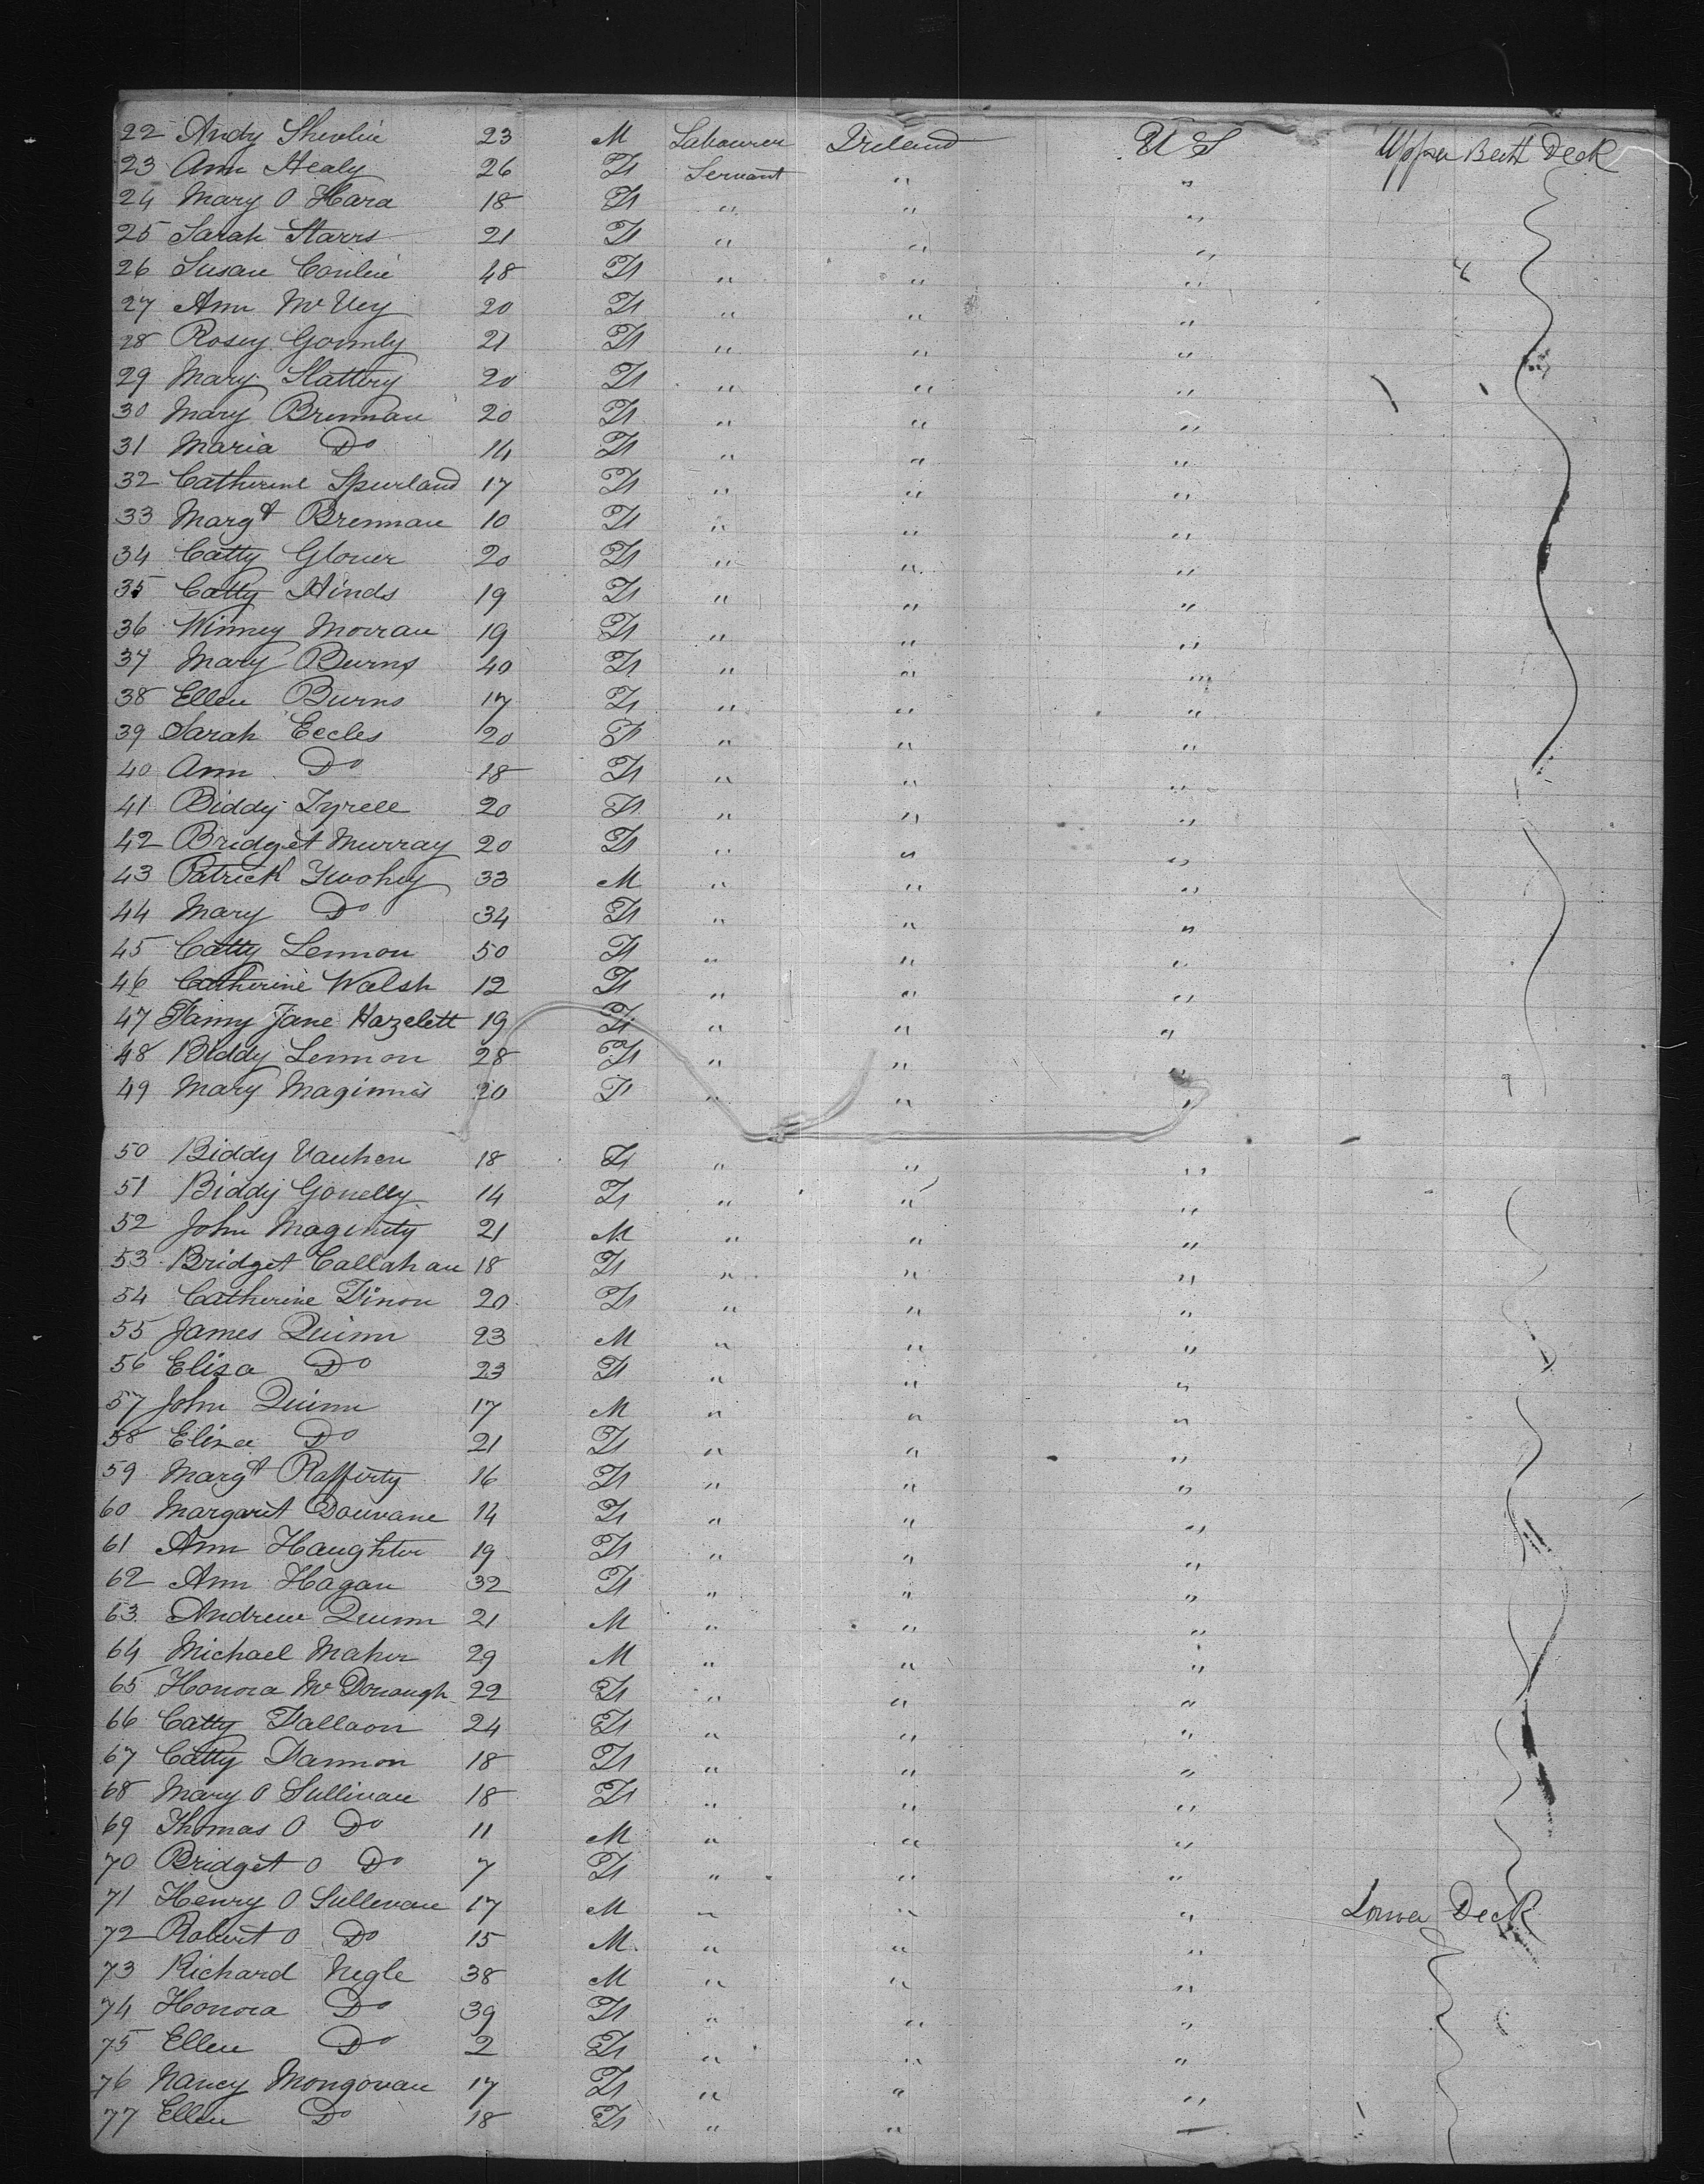 22 Andy Shevlin 23 M Labourer Ireland U S Upper Bett Deck
23 Ann Healy 26 F Servant " "
24 Mary O Hara 18 F " " "
25 Sarah Starrs 21 F " " "
26 Susan Conlin 48 F " " "
27 Ann McVey 20 F " " "
28 Rosey Gormly 21 F " " "
29 Mary Slattery 20 F " " "
30 Mary Brennan 20 F " " "
31 Maria Do 14 F " " "
32 Catherine Spurland 17 F " " "
33 Margt Brennan 10 F " " "
34 Catty Glover 20 F " " "
35 Catty Hinds 19 F " " "
36 Winney Morran 19 F " " "
37 Mary Burns 40 F " " "
38 Ellen Burns 17 F " " "
39 Sarah Eccles 20 F " " "
40 Ann Do 18 F " " "
41 Biddy Tyrell 20 F " " "
42 Bridget Murray 20 F " " "
43 Patrick Twohey 33 M " " "
44 Mary Do 34 F " " "
45 Catty Lennon 50 F " " "
46 Catherine Walsh 12 F " " "
47 Fanny Jane Hazelett 19 F " " "
48 Biddy Lennon 28 F " " "
49 Mary Maginnis 20 F " " "
50 Biddy Vauhen 18 F " " "
51 Biddy Gonelly 14 F " " "
52 John Maginity 21 M " " "
53 Bridget Callahan 18 F " " "
54 Catherine Finon 20 F " " "
55 James Quinn 23 M " " "
56 Eliza Do 23 F " " "
57 John Quinn 17 M " " "
58 Eliza Do 21 F " " "
59 Margt Rafferty 16 F " " "
60 Margaret Douvane 14 F " " "
61 Ann Haughter 19 F " " "
62 Ann Hagan 32 F " " "
63 Andrew Quinn 21 M " " "
64 Michael Maher 29 M " " "
65 Honora McDonough 22 F " " "
66 Catty Fallaon 24 F " " "
67 Catty Fannon 18 F " " "
68 Mary O Sullivan 18 F " " "
69 Thomas O Do 11 M " " "
70 Bridget O Do 7 F " " "
71 Henry O Sullevan 17 M " " " Lower Deck
72 Robert O Do 15 M " " "
73 Richard Negle 38 M " " "
74 Honora Do 39 F " " "
75 Ellen Do 2 F " " "
76 Nancy Mongovan 17 F " " "
77 Ellen Do 18 F " "